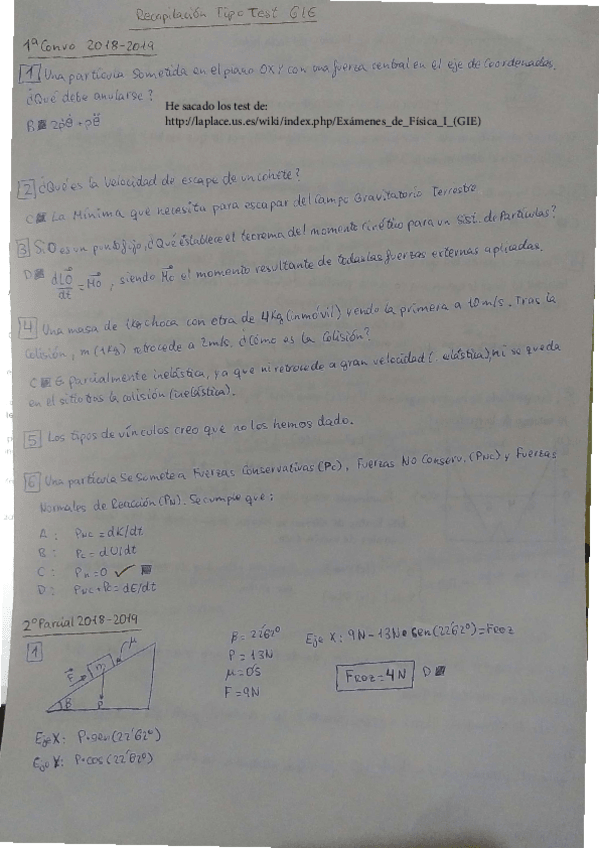 Recopilación Tipo Test GIE
1ª Convo 2018-2019
1 Una partícula sometida en el plano OXY con una fuerza central en el eje de coordenadas.
¿Qué debe anularse?
He sacado los test de:
http://laplace.us.es/wiki/index.php/Exámenes_de_Física_I_(GIE)
B 2ρ̇θ̇ + ρθ̈
2 ¿Qué es la velocidad de escape de un cohete?
C La Mínima que necesita para escapar del campo Gravitatorio Terrestre
3 Si O es un punto fijo, ¿Qué establece el teorema del momento cinético para un Sist. de Partículas?
D dLO/dt = MO, siendo MO el momento resultante de todas las fuerzas externas aplicadas.
4 Una masa de 1kg choca con otra de 4kg (inmóvil) yendo la primera a 10 m/s. Tras la
colisión, m (1kg) retrocede a 2m/s. ¿Cómo es la colisión?
C Es parcialmente inelástica, ya que ni retrocede a gran velocidad (elástica) ni se queda
en el sitio tras la colisión (inelástica).
5 Los tipos de vínculos creo que no los hemos dado.
6 Una partícula se somete a Fuerzas Conservativas (Pc), Fuerzas No Conserv. (PNC) y Fuerzas
Normales de Reacción (PN). Se cumple que:
A: PNC = dK/dt
B: Pc = dU/dt
C: Pn = 0 ✓
D: PNC + Pc = dE/dt
2º Parcial 2018-2019
1
F m μ
β P
β = 22'62º
P = 13N
μ = 0'5
F = 9N
Eje X: 9N - 13N • sen(22'62º) = FROZ
FROZ = 4N D
Eje X: P•sen(22'62º)
Eje Y: P•cos(22'62º)